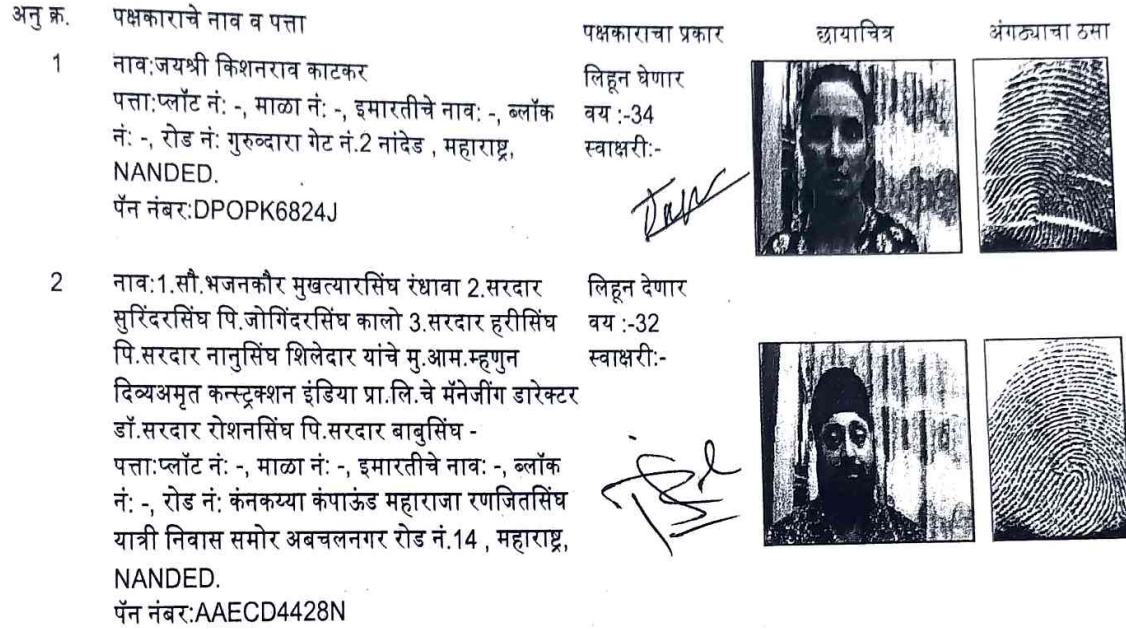 अनु क्र. पक्षकाराचे नाव व पत्ता पक्षकाराचा प्रकार छायाचित्र अंगठ्याचा ठसा
1 नाव:जयश्री किशनराव काटकर लिहून घेणार
पत्ता:प्लॉट नं: -, माळा नं: -, इमारतीचे नाव: -, ब्लॉक वय :-34
नं: -, रोड नं: गुरुव्दारा गेट नं.2 नांदेड , महाराष्ट्र, स्वाक्षरी:-
NANDED.
पॅन नंबर:DPOPK6824J
2 नाव:1.सौ.भजनकौर मुखत्यारसिंघ रंधावा 2.सरदार लिहून देणार
सुरिंदरसिंघ पि.जोगिंदरसिंघ कालो 3.सरदार हरीसिंघ वय :-32
पि.सरदार नानुसिंघ शिलेदार यांचे मु.आम.म्हणुन स्वाक्षरी:-
दिव्यअमृत कन्स्ट्रक्शन इंडिया प्रा.लि.चे मॅनेजींग डारेक्टर
डॉ.सरदार रोशनसिंघ पि.सरदार बाबुसिंघ -
पत्ता:प्लॉट नं: -, माळा नं: -, इमारतीचे नाव: -, ब्लॉक
नं: -, रोड नं: कंनकय्या कंपाऊंड महाराजा रणजितसिंघ
यात्री निवास समोर अबचलनगर रोड नं.14 , महाराष्ट्र,
NANDED.
पॅन नंबर:AAECD4428N